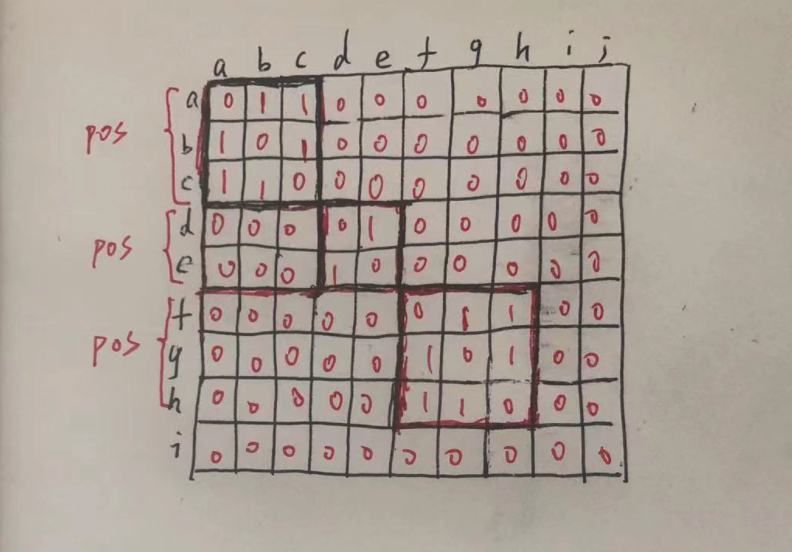 a b c d e f g h i j
a 0 1 1 0 0 0 0 0 0 0
pos
b 1 0 1 0 0 0 0 0 0 0
c 1 1 0 0 0 0 0 0 0 0
d 0 0 0 0 1 0 0 0 0 0
pos
e 0 0 0 1 0 0 0 0 0 0
f 0 0 0 0 0 0 1 1 0 0
pos
g 0 0 0 0 0 1 0 1 0 0
h 0 0 0 0 0 1 1 0 0 0
i 0 0 0 0 0 0 0 0 0 0